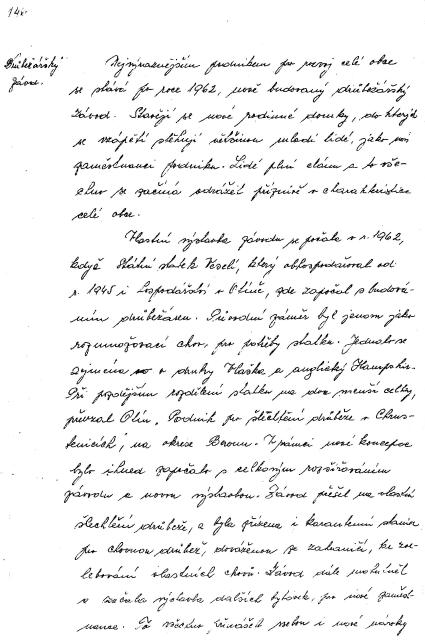 146.
Drůbežářský
závod.
Nejvýznamnějším podnikem pro rozvoj celé obce
se stává po roce 1962, nově budovaný drůbežářský
závod. Stavějí se nové rodinné domky, do kterých
se vzápětí stěhují většinou mladí lidé, jako noví
zaměstnanci podniku. Lidé plní elánu a to vše
se začíná odrážet příznivě v charakteristice
celé obce.
Vlastní výstavba závodu se počala v r. 1962,
když Státní statek Veselí, který obhospodařoval od
r. 1945 i hospodářství v Olíně, zde započal s budová-
ním drůbežáren. Původní záměr byl jenom jako
rozmnožovací chov, pro potřeby statku. Jednalo se
zejména o druhy Vlaška a anglický Hampshir.
Při pozdějším rozdělení statku na dva menší celky,
převzal Olín, Podnik pro šlechtění drůbeže v Chrus-
tenicích, na okrese Beroun. V rámci nové koncepce
bylo ihned započato s velkorysým rozšiřováním
závodu a novou výstavbou. Závod přešel na vlastní
šlechtění drůbeže, a byla zřízena i karanténní stanice
pro chovnou drůbež, dováženou ze zahraničí, ke zo-
vlastních chovů. Závod dále mohutněl
a začala výstavba dalších bytovek, pro nové zaměst-
nance. To všechno přinášelo sebou i nové nároky